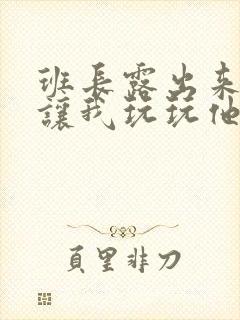 班長露出來
讓我玩玩他
頁里非刀